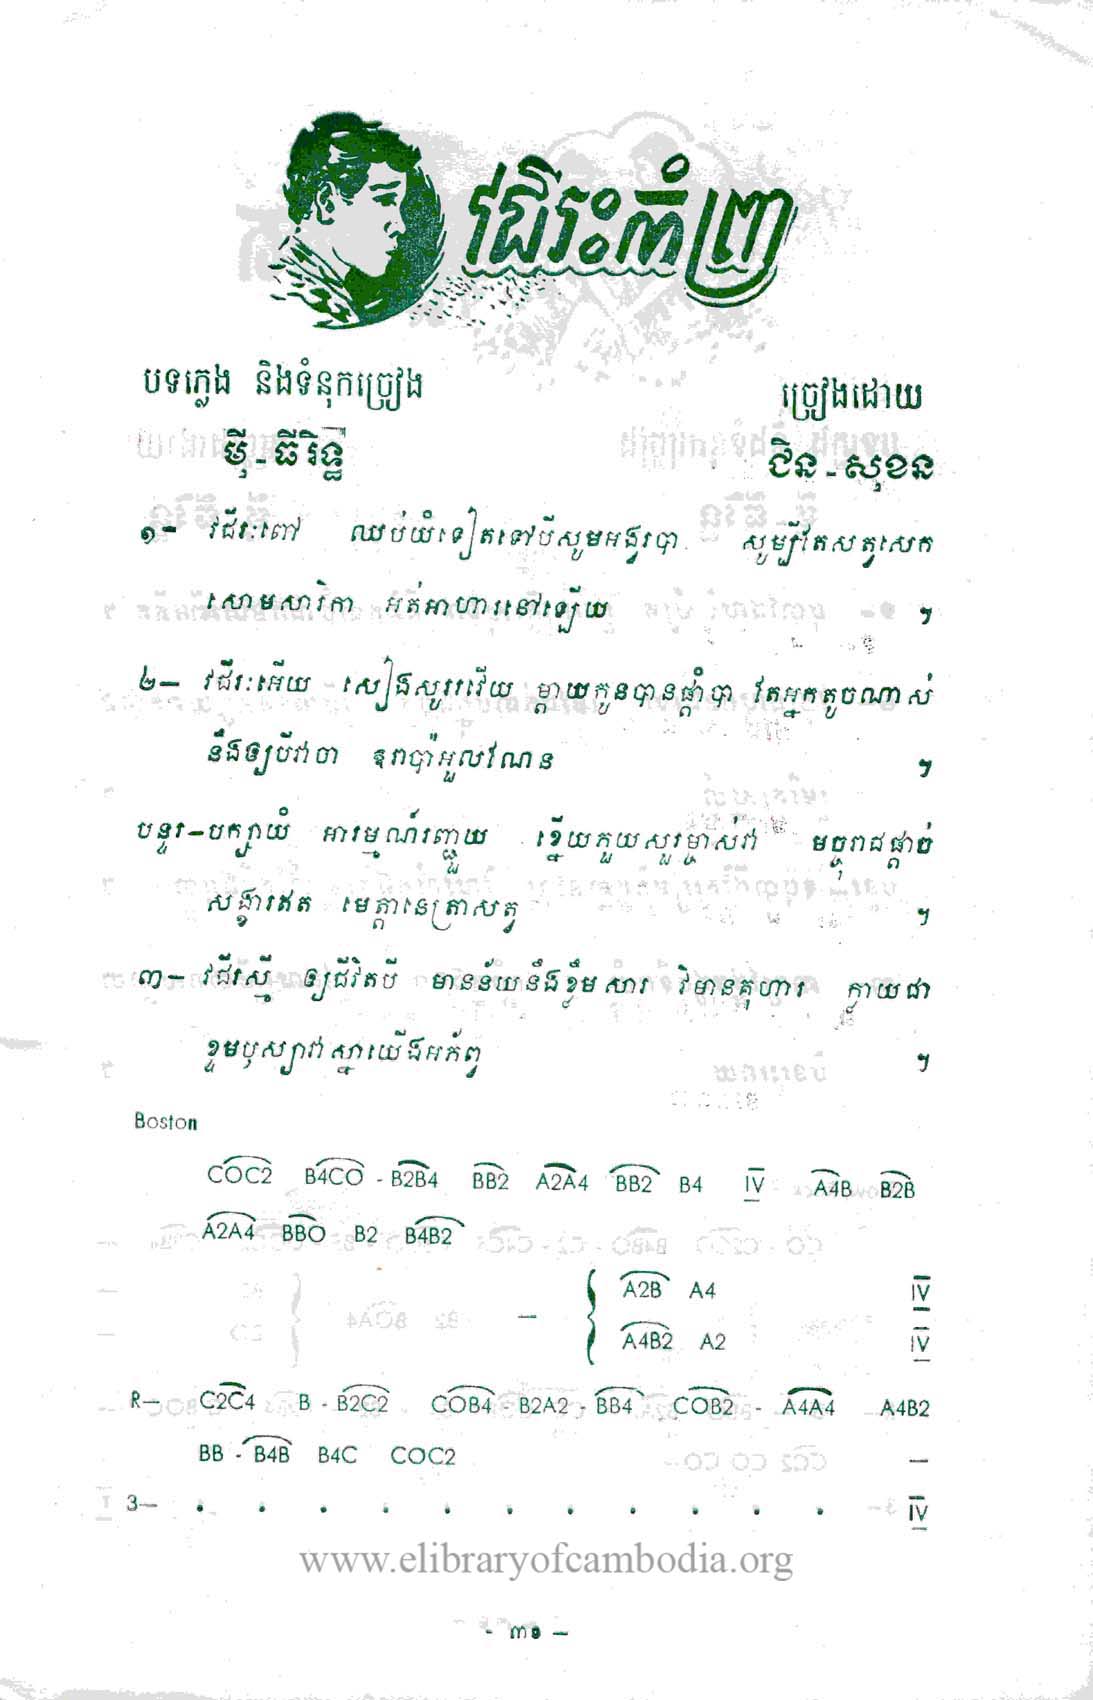 វជីរ:កំព្រា
បទភ្លេង និងទំនុកច្រៀង
ច្រៀងដោយ
ម៉ី - ធីរិទ្ធ
ជិន - សុខន
១- វជីរ:ពៅ ឈប់យំទៀតទៅបីសូមអង្វរបា សូម្បីតែសត្វសេក
សោមសារិកា អត់អាហារនៅឡើយ ។
២- វជីរ:អើយ សៀងសូររវើយ ម្ដាយកូនបានផ្ដាំបា តែអ្នកតូចណាស់
នឹងឲ្យបីវាចា ឱរាប៉ាអួលណែន ។
បន្ទរ-បក្សាយំ អារម្មណ៍រញ្ជួយ ខ្នើយកួយសួរម្ចាស់វា មច្ចុរាជផ្ដាច់
សង្ខារឥត មេត្តានេត្រាសត្វ ។
៣- វជីរស្មី ឲ្យជីវិតបី មានន័យនឹងខ្លឹមសារ វិមានគុហារ ក្លាយជា
ខ្ទមបុស្បាវាស្នាយើងអភ័ព្វ ។
Boston
COC2 B4CO - B2B4 BB2 A2A4 BB2 B4 IV A4B B2B
A2A4 BBO B2 B4B2
A2B A4 IV
— { A4B2 A2 IV
R— C2C4 B - B2C2 COB4 B2A2 - BB4 COB2 - A4A4 A4B2
BB - B4B B4C COC2 —
3— . . . . . . . . . . . IV
www.elibraryofcambodia.org
- ៣១ —